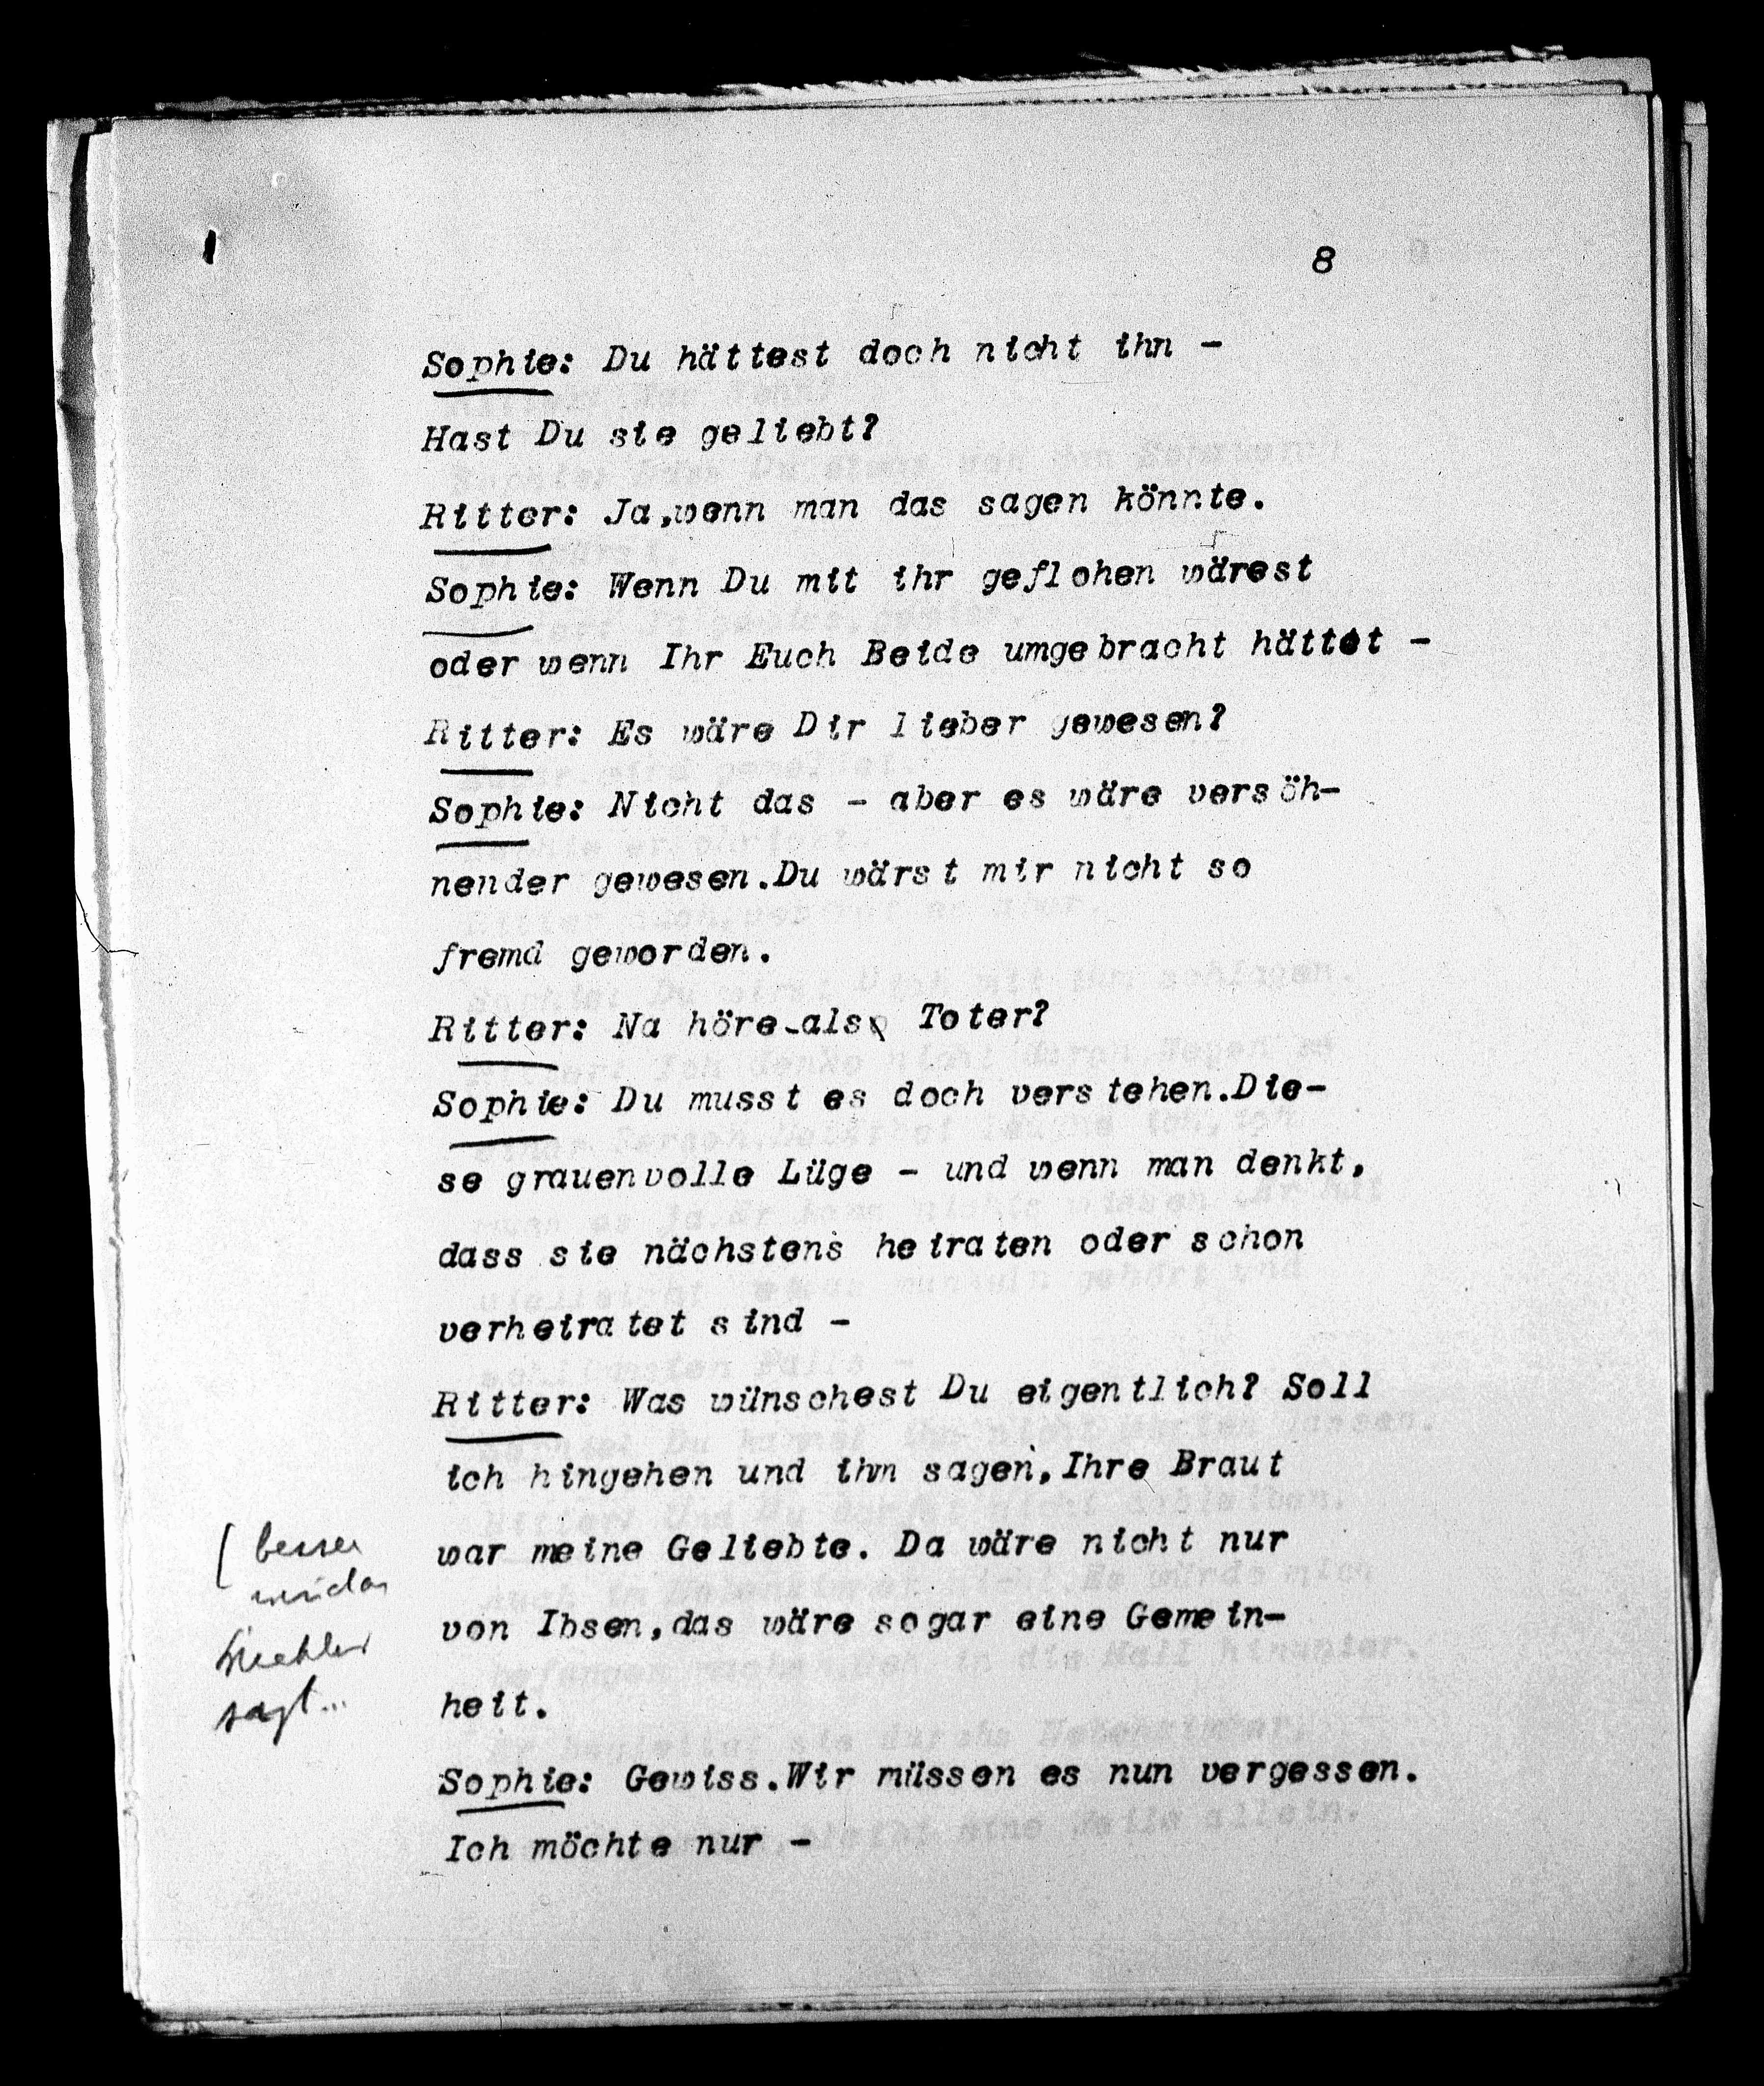 8
Sophie: Du hättest doch nicht ihn -
Hast Du sie geliebt?
Ritter: Ja,wenn man das sagen könnte.
Sophie: Wenn Du mit ihr geflohen wärest
oder wenn Ihr Euch Beide umgebracht hättet -
Ritter: Es wäre Dir lieber gewesen?
Sophie: Nicht das - aber es wäre versöh-
nender gewesen.Du wärst mir nicht so
fremd geworden.
Ritter: Na höre-als Toter?
Sophie: Du musst es doch verstehen.Die-
se grauenvolle Lüge - und wenn man denkt,
dass sie nächstens heiraten oder schon
verheiratet sind -
Ritter: Was wünschest Du eigentlich? Soll
ich hingehen und ihm sagen,Ihre Braut
war meine Geliebte. Da wäre nicht nur
von Ibsen,das wäre sogar eine Gemein-
heit.
Sophie: Gewiss.Wir müssen es nun vergessen.
Ich möchte nur -
(besser
sagt...